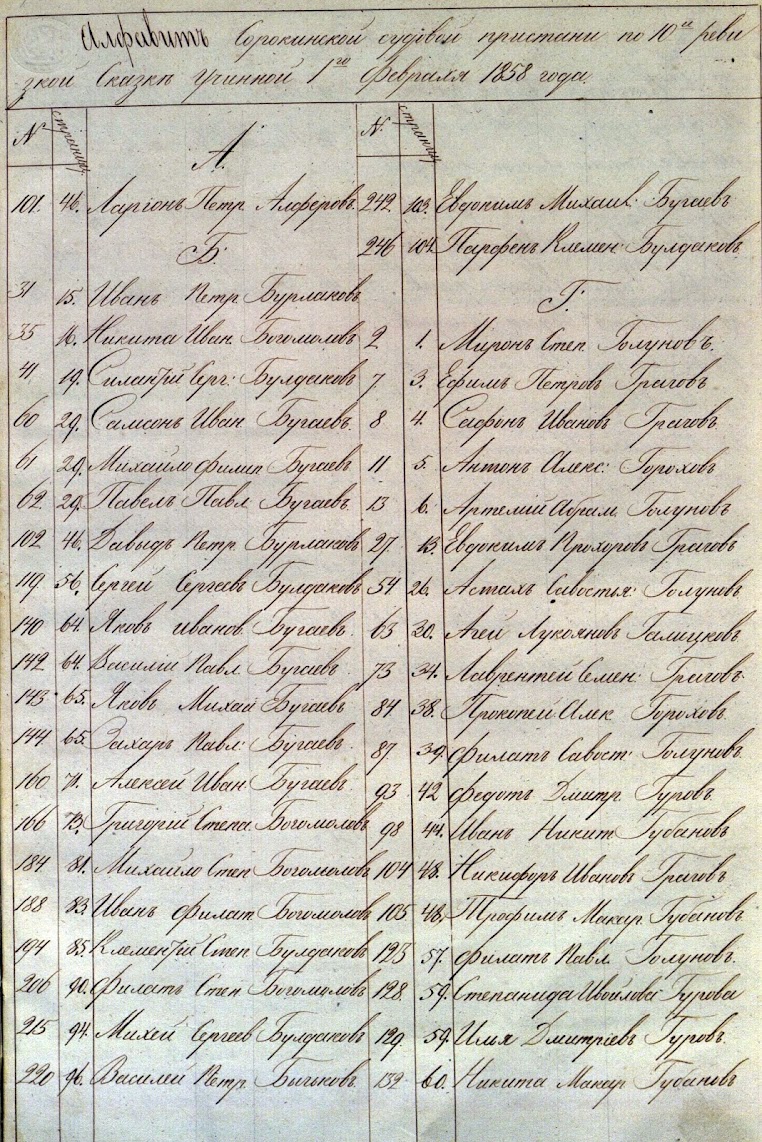 Алфавитъ Сорокинской судовой пристани по 10ой реви
зкой Сказкѣ учинной 1го Февраля 1858 года.
№ страницы
А.
101. 46. Ларіонъ Петр. Алферовъ.
Б.
31 15. Иванъ Петр. Бурлаковъ
35 16. Никита Иван. Богомоловъ
41 19. Силантій Серг: Булдаковъ
60 29. Самсонъ Иван. Бугаевъ.
61 29. Михайло Филип. Бугаевъ
62 29. Павелъ Павл. Бугаевъ.
102 46. Давыдъ Петр. Бурлаковъ
119 56. Сергей Сергеевъ Булдаковъ
140 64. Яковъ Иванов. Бугаевъ.
142 64. Василій Павл. Бугаевъ.
143 65. Яковъ Михай Бугаевъ
144. 65. Захаръ Павл: Бугаевъ.
160 71. Алексей Иван. Бугаевъ.
166 73. Григорій Степа. Богомоловъ
184 81. Михайло Степ. Богомоловъ
188 83. Иванъ Филат. Богомоловъ
194 85. Клементій Степ. Булдаковъ
206 90. Филатъ Степ. Богомоловъ
215 94. Михей Сергеев. Булдаковъ
220 96. Василей Петр. Быковъ.
№. страницы
242 103. Евдокимъ Михаил: Бугаевъ
246 104. Парфенъ Клемен: Булдаковъ.
Г.
2 1. Миронъ Степ. Голуновъ.
7 3. Ефимъ Петровъ Граговъ.
8 4. Сафонъ Ивановъ Граговъ.
11 5. Антонъ Алекс: Гороховъ
13 6. Артемій Абрам. Голуновъ
27. 13. Евдокимъ Прохоровъ Граговъ
54 26. Астахъ Савостья: Голуновъ
63 30. Агей Лукояновъ Галицковъ.
73 34. Лаврентей Семен: Граговъ.
84 38. Прокопей Алек. Гороховъ.
87. 39. Филатъ Савост: Голуновъ.
93 42 Федотъ Дмитр. Гуровъ.
98 44. Иванъ Никит. Губановъ
104 48. Никифоръ Ивановъ Граговъ
105 48. Трофимъ Макар. Губановъ
123 57. Филатъ Павл. Голуновъ.
128. 59. Степанида Гурова
129. 59. Илья Дмитріевъ Гуровъ.
132 60. Никита Макар. Губановъ